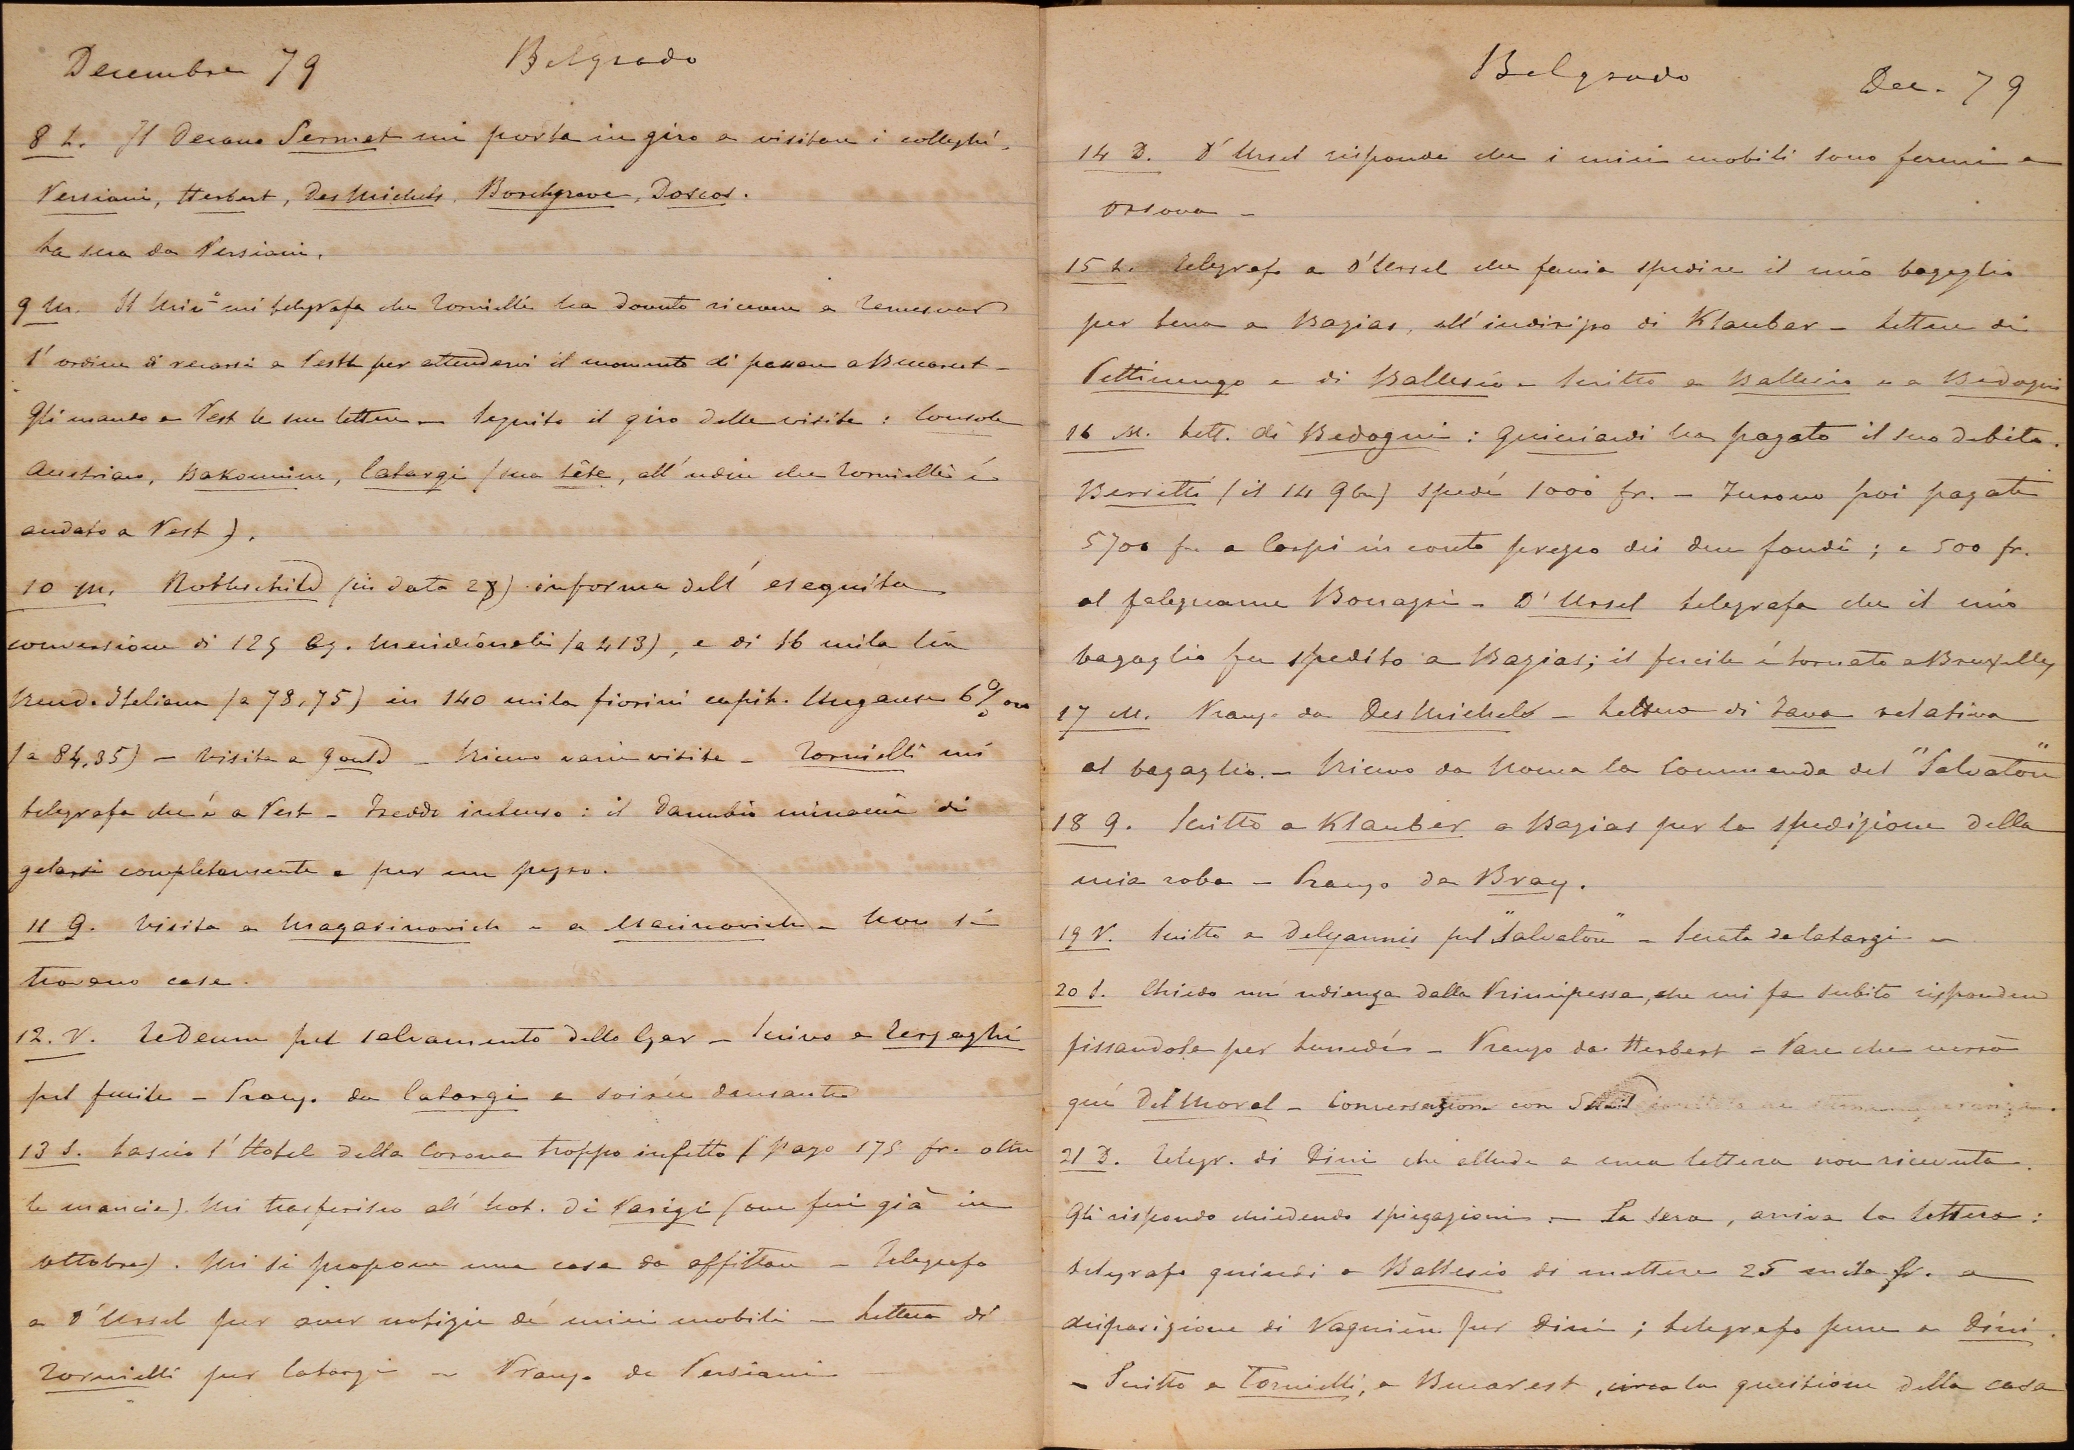 Decembre 79 Belgrado
8 L. Il Decano Sermet mi porta in giro a visitare i colleghi,
Persiani, Herbert, Des Michels, Borchgrave, Dorcos.
La sera da Persiani.
9 M. Il Min.° mi telegrafa che Tornielli ha dovuto ricevere a Temesvar
l'ordine di recarsi a Pesth per attendervi il momento di passare a Bucarest -
Gli mando a Pest le sue lettere - Seguito il giro delle visite: Console
Austriaco, Bakounine, Catargi (sua tête, all'udire che Tornielli è
andato a Pest).
10 M. Rothschild (in data 28) informa dell'eseguita
conversione di 125 Obg. Meridionali (a 413), e di 16 mila lire
Rend. Italiana (a 78,75) in 140 mila fiorini capit. Ungarese 6% oro
(a 84,35) - Visita a Gould - Ricevo varie visite - Tornielli mi
telegrafa che è a Pest - Freddo intenso: il Danubio minaccia di
gelarsi completamente e per un pezzo.
11 G. Visita a Magasinovich e a Marinovich - Non si
trovano case.
12. V. TeDeum pel salvamento dello Czar - Scrivo a Terzaghi
pel fucile - Pranzo da Catargi e soirée dansante
13 S. Lascio l'Hotel della Corona troppo infetto (pago 175 fr. oltre
le mancie). Mi trasferisco all'hot. di Parigi (ove fui già in
ottobre). Mi si propone una casa da affittare - Telegrafo
a D'Ursel per aver notizie de' miei mobili - Lettera di
Tornielli per Catargi - Pranzo da Persiani
Belgrado Dec. 79
14 D. D'Ursel risponde che i miei mobili sono fermi a
Orsova -
15 L. Telegrafo a D'Ursel che faccia spedire il mio bagaglio
per terra a Bazias, all'indirizzo di Klauber - Lettere di
Pettinengo e di Ballesio - Scritto a Ballesio e a Bedogni
16 M. Lett. di Bedogni: Guicciardi ha pagato il suo debito.
Berretti (il 14 9bre) spedì 1000 fr. - Furono poi pagati
5700 fr. a Carpi in conto prezzo dei due fondi; e 500 fr.
al falegname Bonazzi - D'Ursel telegrafa che il mio
bagaglio fu spedito a Bazias; il fucile è tornato a Bruxelles
17 M. Pranzo da Des Michels - Lettera di Java relativa
al bagaglio. - Ricevo da Roma la Commenda del "Salvatore"
18 G. Scritto a Klauber a Bazias per la spedizione della
mia roba - Pranzo da Bray.
19 V. Scritto a Delyannis pel "Salvatore" - Serata da Catargi -
20 S. Chiedo un'udienza dalla Principessa, che mi fa subito rispondere
fissandola per Lunedì - Pranzo da Herbert - Pare che verrà
qui Del Moral - Conversazione con
21 D. Telegr. di Dini che allude a una lettera non ricevuta.
Gli rispondo chiedendo spiegazioni. - La sera, arriva la lettera:
telegrafo quindi a Ballesio di mettere 25 mila fr. a
disposizione di Vagnière per Dini; telegrafo pure a Dini.
- Scritto a Tornielli, a Bucarest, circa la quistione della casa